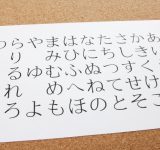 あいう
かきくけこ
さしすせそ
たちつてと
なにぬねの
はひふへほ
まみむめも
やゆよ
らりるれろ